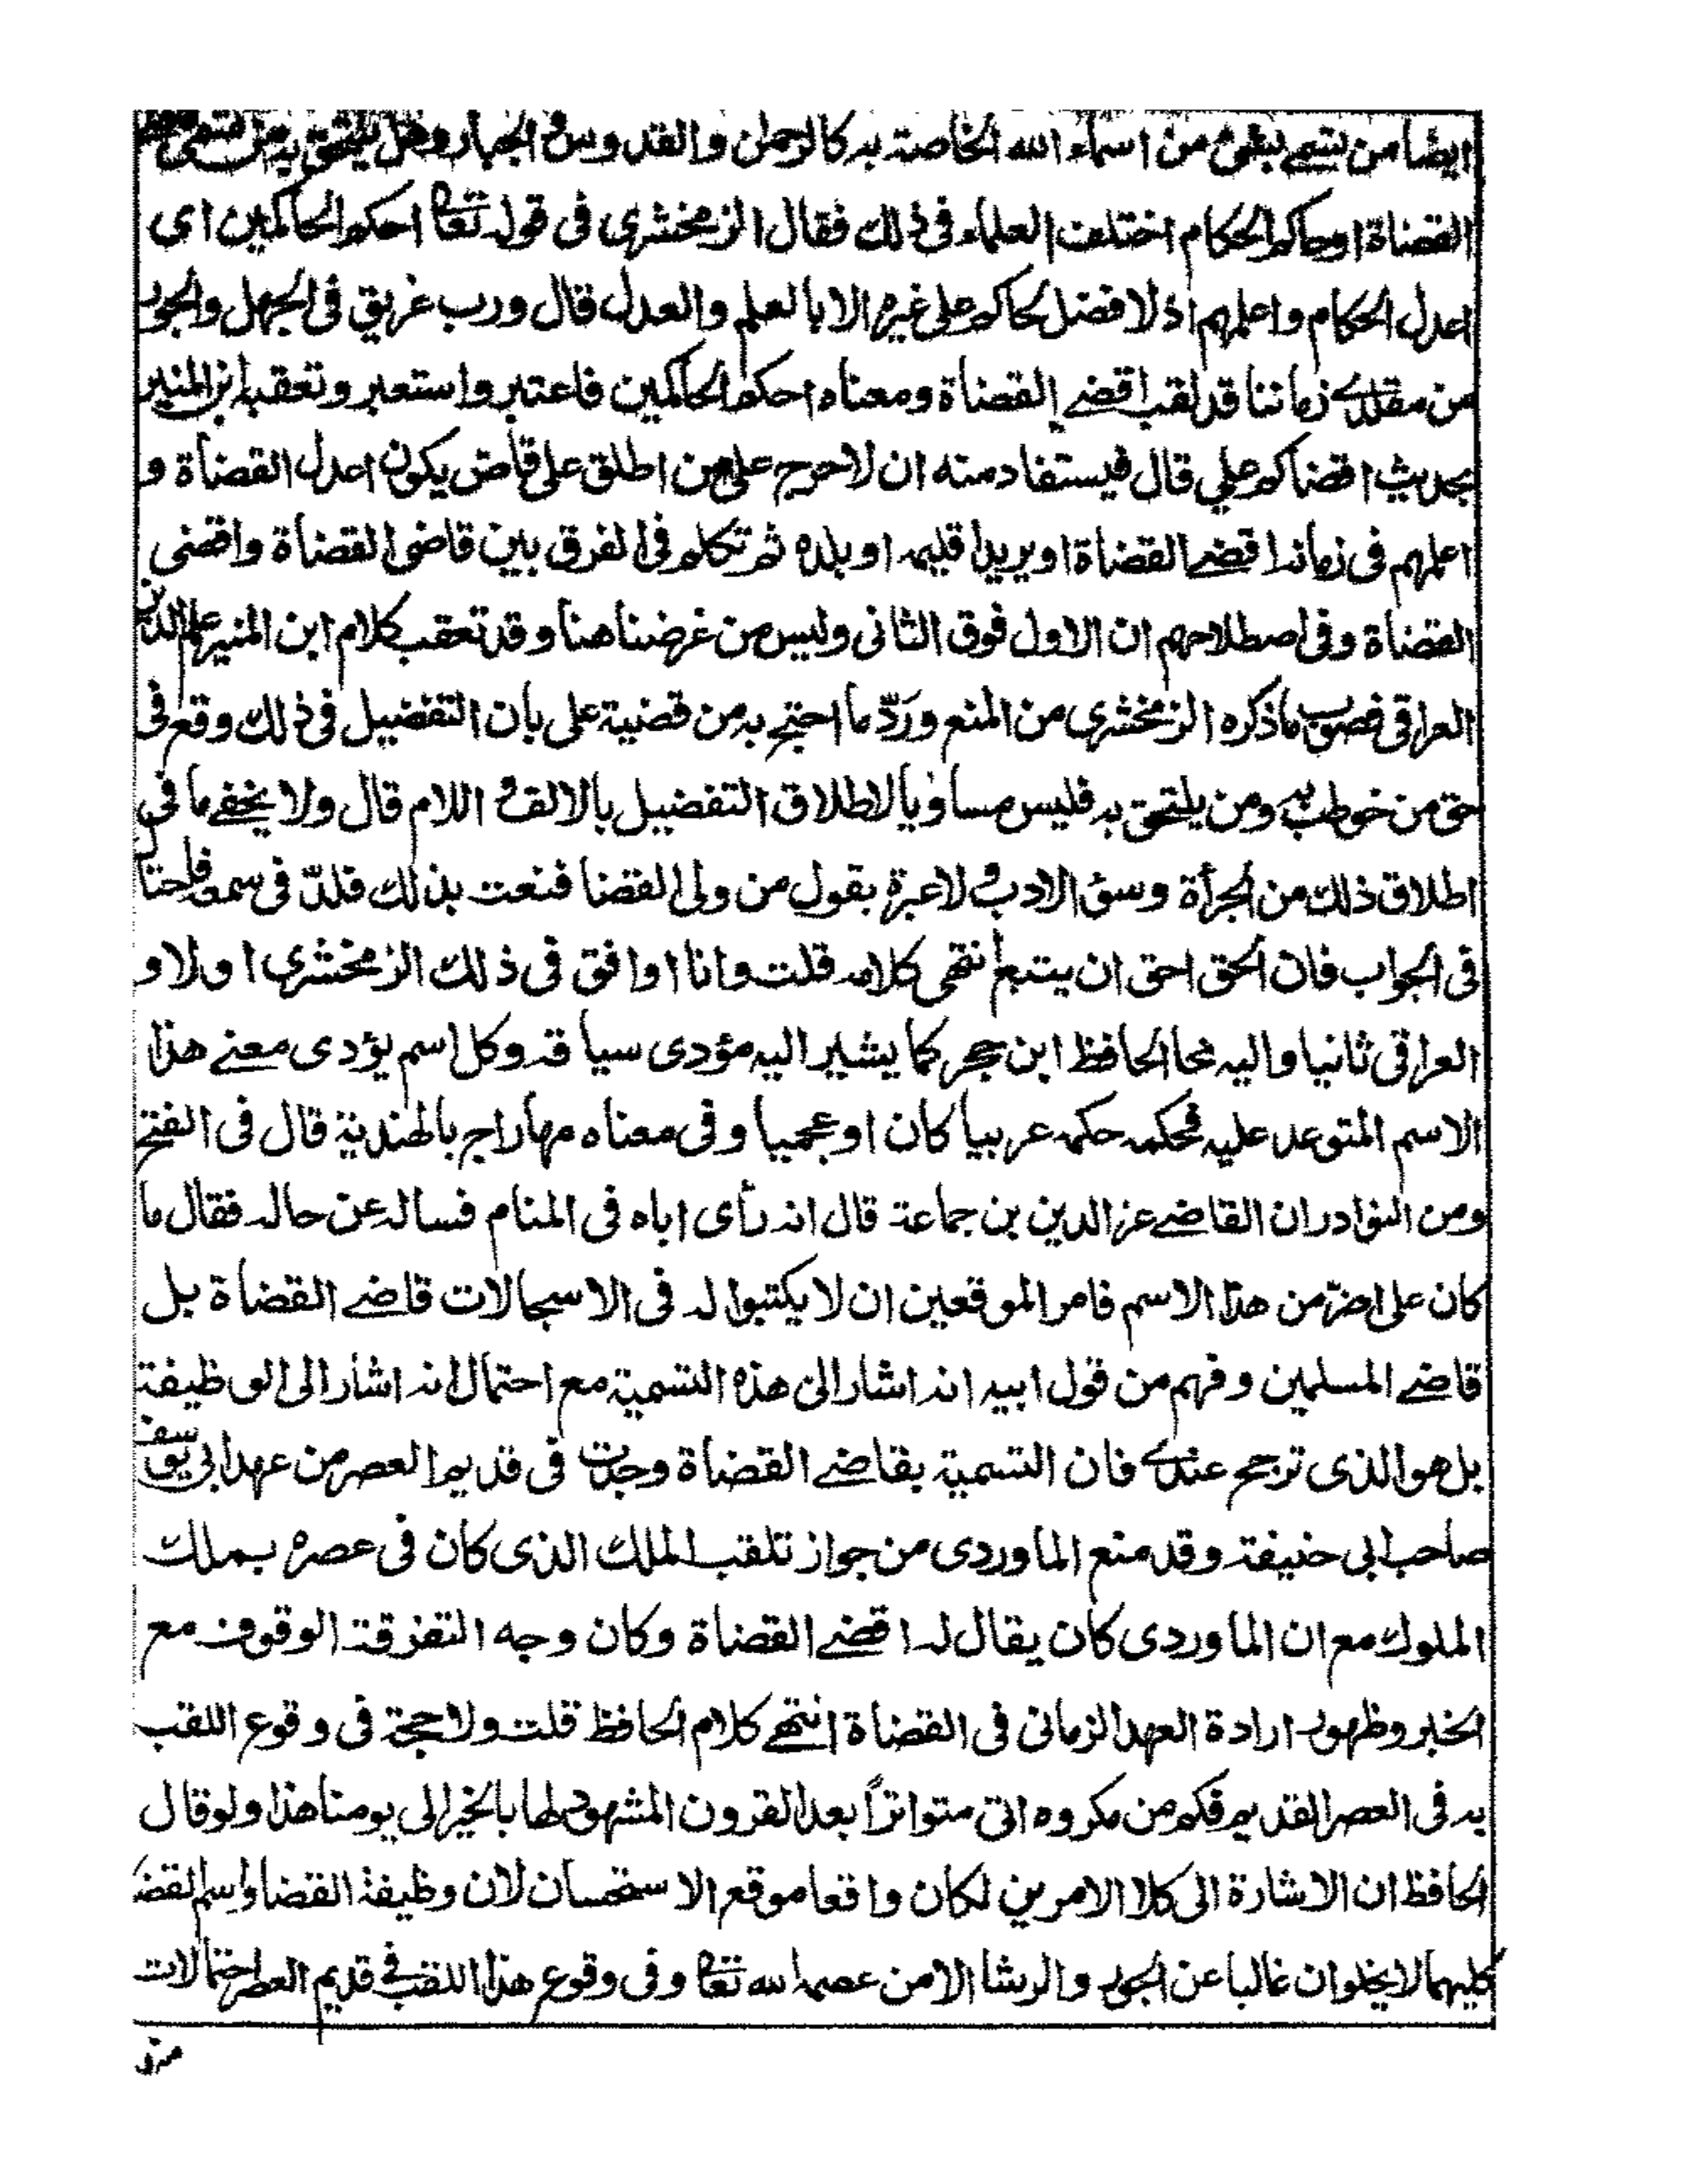 ايضا من تسمى بشئ من اسماء الله الخاصة به كالرحمن والقدوس والجبار وهل يلتحق به من تسمى
القضاة او حاكم الحكام اختلف العلماء فى ذلك فقال الزمخشرى فى قوله تعالى احكم الحاكمين اى
اعدل الحكام واعلمهم اذ لا فضل لحاكم على غيره الا بالعلم والعدل قال ورب غريق فى الجهل والجور
من مقلدى زماننا قد لقب اقضى القضاة ومعناه احكم الحاكمين فاعتبر واستعبر وتعقبه ابن المنير
بحديث اقضاكم علي قال فيستفاد منه ان لا حرج على من اطلق على قاض يكون اعدل القضاة و
اعلمهم فى زمانه اقضى القضاة او يريد اقليمه او بلده ثم تكلم فى الفرق بين قاضى القضاة واقضى
القضاة وفى اصطلاحهم ان الاول فوق الثانى وليس من غرضنا هنا وقد تعقب كلام ابن المنير علم الدين
العراقى فصوب ما ذكره الزمخشرى من المنع وردّ ما احتج به من قضية على بان التفضيل فى ذلك وقع فى
حق من خوطب به ومن يلتحق به فليس مساويا لاطلاق التفضيل بالالف واللام قال ولا يخفى ما فى
اطلاق ذلك من الجرأة وسؤ الادب ولا عبرة بقول من ولى القضا فنعت بذلك فلذّ فى سمعه فاحتال
فى الجواب فان الحق احق ان يتبع انتهى كلامه قلت وانا اوافق فى ذلك الزمخشرى اولا و
العراقى ثانيا واليه نحا الحافظ ابن حجر كما يشير اليه مؤدى سياقه وكل اسم يؤدى معنى هذا
الاسم المتوعد عليه فحكمه حكمه عربيا كان او عجميا وفى معناه مهاراج بالهندية قال فى الفتح
ومن النوادر ان القاضى عز الدين بن جماعة قال انه رأى اباه فى المنام فساله عن حاله فقال ما
كان على اضرّ من هذا الاسم فامر الموقعين ان لا يكتبوا له فى الاسجالات قاضى القضاة بل
قاضى المسلمين وفهم من قول ابيه انه اشار الى هذه التسمية مع احتمال انه اشار الى الوظيفة
بل هو الذى ترجح عندى فان التسمية بقاضى القضاة وجدت فى قديم العصر من عهد ابى يوسف
صاحب ابى حنيفة وقد منع الماوردى من جواز تلقب الملك الذى كان فى عصره بملك
الملوك مع ان الماوردى كان يقال له اقضى القضاة وكان وجه التفرقة الوقوف مع
الخبر وظهور ارادة العهد الزمانى فى القضاة انتهى كلام الحافظ قلت ولا حجة فى وقوع اللقب
به فى العصر القديم فكم من مكروه اتى متواتراً بعد القرون المشهود لها بالخير الى يومنا هذا ولو قال
الحافظ ان الاشارة الى كلا الامرين لكان واقعا موقع الاستحسان لان وظيفة القضا واسم القضا
كليهما لا يخلوان غالبا عن الجور والرشا الا من عصمه الله تعالى وفى وقوع هذا اللقب فى قديم العصر احتمالات